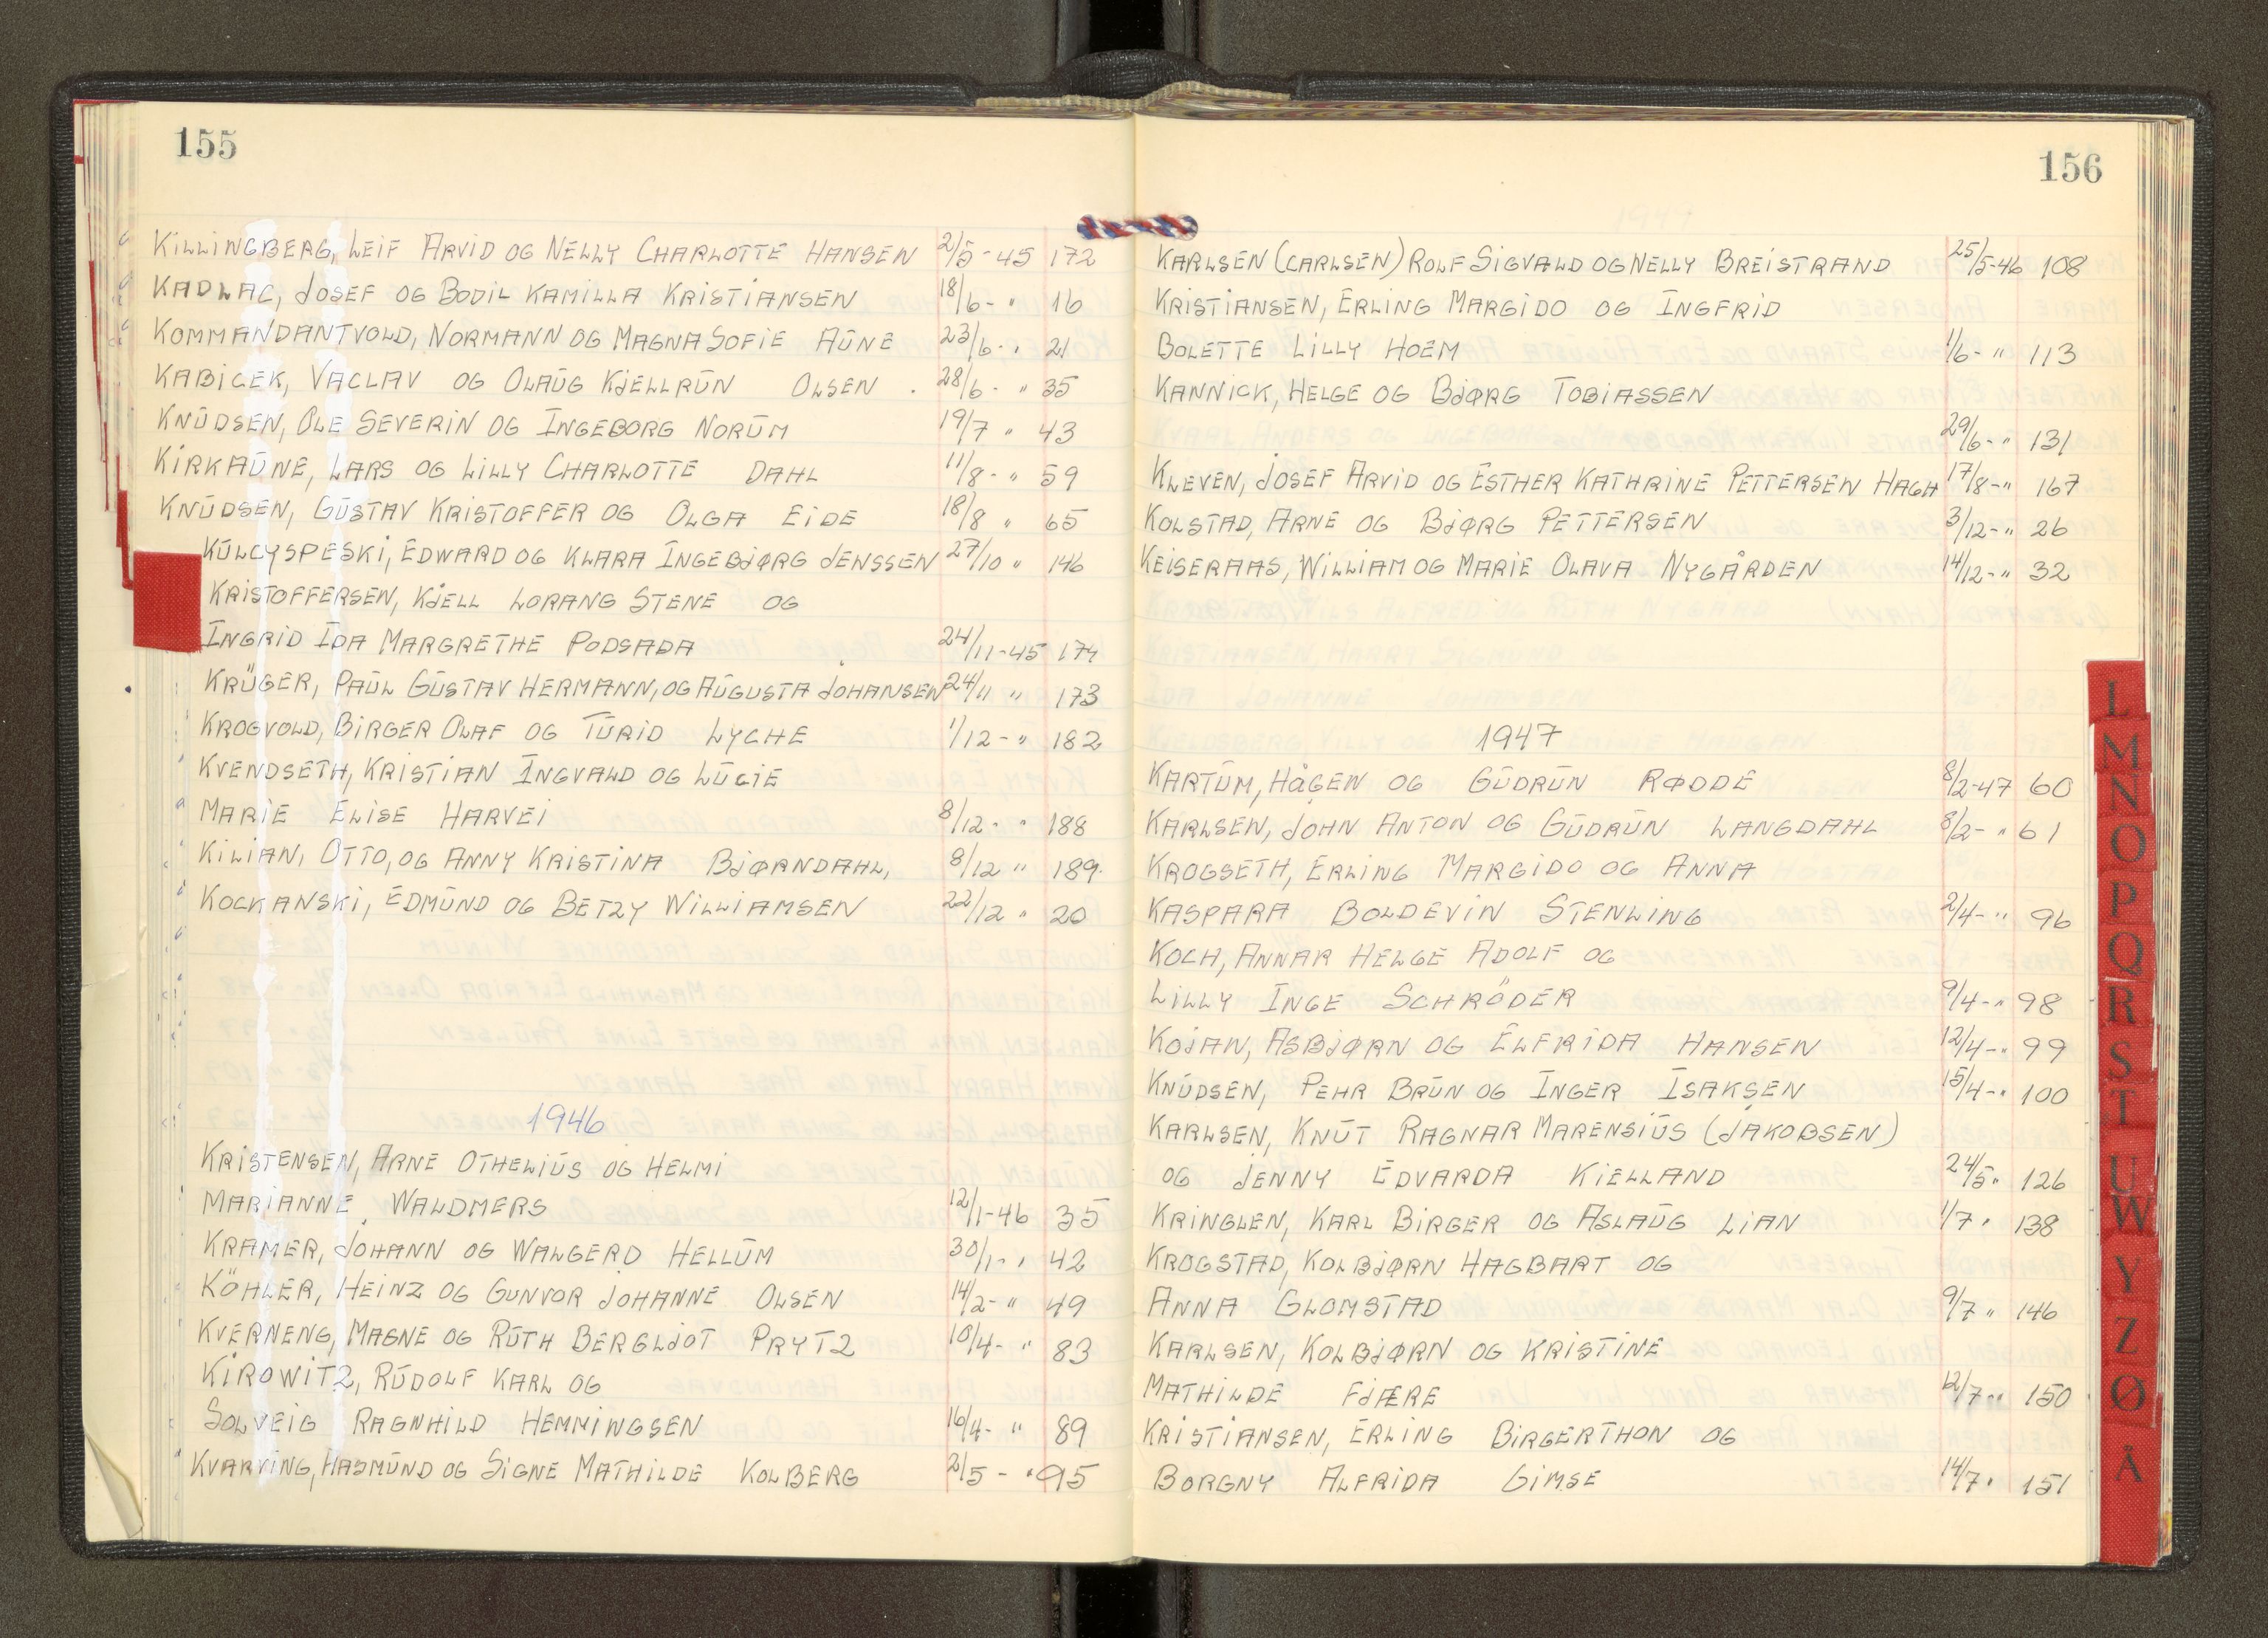 155
KILLINGBERG, LEIF ARVID OG NELLY CHARLOTTE HANSEN 2/5-45 172
KADLAC, JOSEF OG BODIL KAMILLA KRISTIANSEN 18/6- " 16
KOMMANDANTVOLD, NORMANN OG MAGNA SOFIE AŪNE 23/6- " 21
KABICEK, VACLAV OG OLAŪG KJELLRŪN OLSEN . 28/6- " 35
KNŪDSEN, OLE SEVERIN OG INGEBORG NORŪM 19/7 " 43
KIRKAŪNE, LARS OG LILLY CHARLOTTE DAHL 11/8- " 59
KNŪDSEN, GŪSTAV KRISTOFFER OG OLGA EIDE 18/8 " 65
KŪLCYSPESKI, EDWARD OG KLARA INGEBJØRG JENSSEN 27/10 " 146
KRISTOFFERSEN, KJELL LORANG STENE OG
INGRID IDA MARGRETHE PODSADA 24/11-45 174
KRÜGER, PAŪL GŪSTAV HERMANN, OG AŪGUSTA JOHANSEN 24/11 " 173
KROGVOLD, BIRGER OLAF OG TŪRID LYCHE 1/12- " 182
KVENDSETH, KRISTIAN INGVALD OG LŪCIE
MARIE ELISE HARVEI 8/12- " 188
KILIAN, OTTO, OG ANNY KRISTINA BJØRNDAHL, 8/12 " 189.
KOCKANSKI, EDMŪND OG BETZY WILLIAMSEN 22/12 " 20
1946
KRISTENSEN, ARNE OTHELIŪS OG HELMI
MARIANNE WALDMERS 12/1-46 35
KRAMER, JOHANN OG WALGERD HELLŪM 30/1- " 42
KÖHLER, HEINZ OG GUNVOR JOHANNE OLSEN 14/2- " 49
KVERNENG, MAGNE OG RŪTH BERGLJOT PRYTZ 10/4- " 83
KIROWITZ, RŪDOLF KARL OG
SOLVEIG RAGNHILD HEMMINGSEN 16/4- " 89
KVARVING, HASMŪND OG SIGNE MATHILDE KOLBERG 2/5- " 95
156
KARLSEN (CARLSEN) ROLF SIGVALD OG NELLY BREISTRAND 25/5-46 108
KRISTIANSEN, ERLING MARGIDO OG INGFRID
BOLETTE LILLY HOEM 1/6- " 113
KANNICK, HELGE OG BJØRG TOBIASSEN
29/6- " 131
KLEVEN, JOSEF ARVID OG ESTHER KATHRINE PETTERSEN HAGH 17/8- " 167
KOLSTAD, ARNE OG BJØRG PETTERSEN 3/12- " 26
KEISERAAS, WILLIAM OG MARIE OLAVA NYGÅRDEN 14/12- " 32
1947
KARTŪM, HÅGEN OG GŪDRŪN RØDDE 8/2-47 60
KARLSEN, JOHN ANTON OG GŪDRŪN LANGDAHL 8/2- " 61
KROGSETH, ERLING MARGIDO OG ANNA
KASPARA BOLDEVIN STENLING 2/4- " 96
KOCH, ANNAR HELGE ADOLF OG
LILLY INGE SCHRÖDER 9/4- " 98
KOJAN, ASBJØRN OG ELFRIDA HANSEN 12/4- " 99
KNŪDSEN, PEHR BRŪN OG INGER ISAKSEN 15/4- " 100
KARLSEN, KNŪT RAGNAR MARENSIŪS (JAKOBSEN)
OG JENNY EDVARDA KIELLAND 24/5 " 126
KRINGLEN, KARL BIRGER OG ASLAŪG LIAN 1/7 " 138
KROGSTAD, KOLBJØRN HAGBART OG
ANNA GLOMSTAD 9/7 " 146
KARLSEN, KOLBJØRN OG KRISTINE
MATHILDE FJÆRE 12/7 " 150
KRISTIANSEN, ERLING BIRGERTHON OG
BORGNY ALFRIDA GIMSE 14/7 " 151
L
M
N
O
P
Q
R
S
T
U
W
Y
Z
Ø